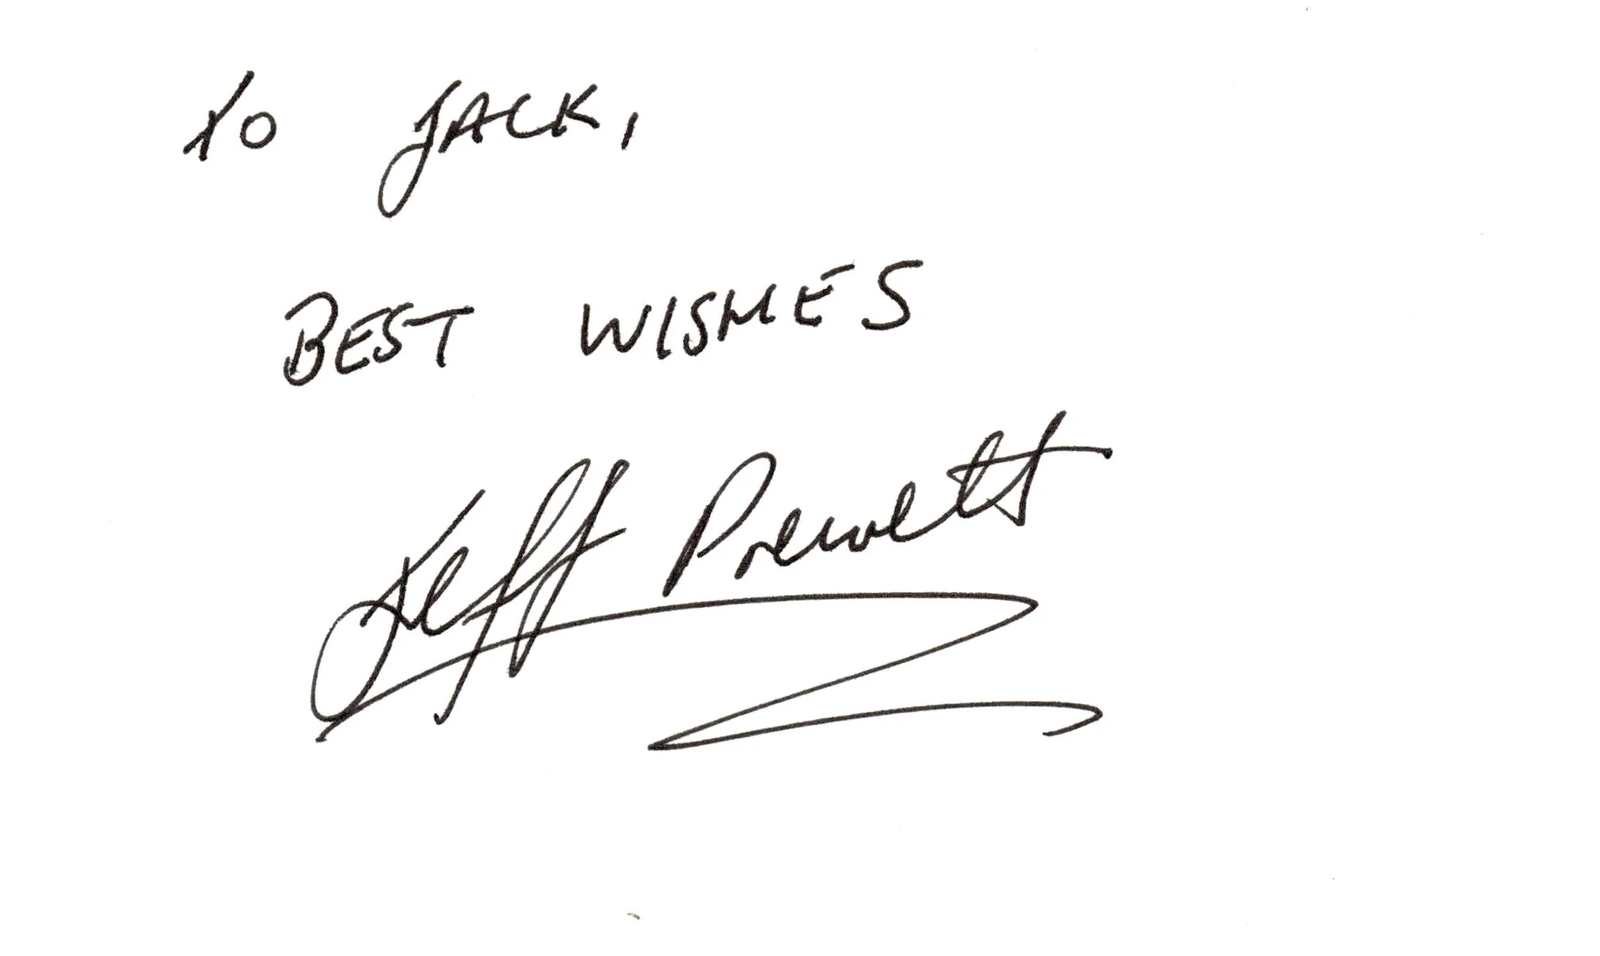 To JACK,
BEST WISHES
Jeff Prewett